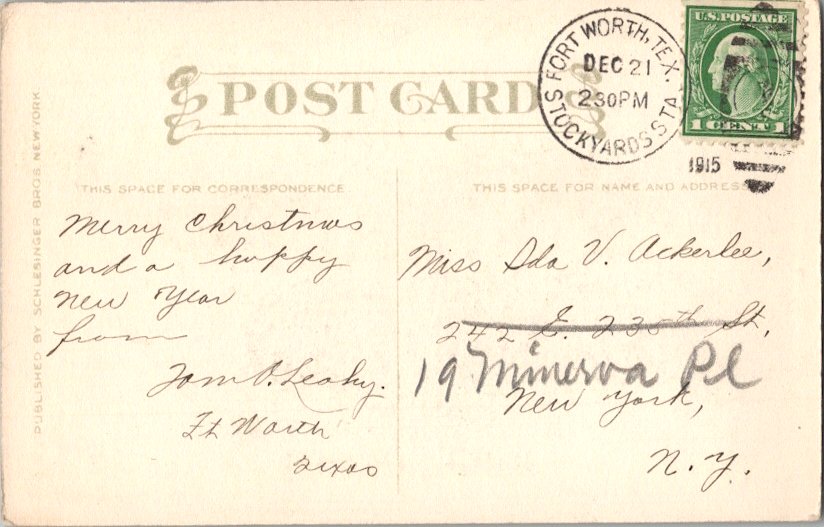 U.S. POSTAGE
1 CENT 1
FORT WORTH, TEX.
DEC 21
230PM
STOCKYARDS STA.
1915
POST CARD
THIS SPACE FOR CORRESPONDENCE
THIS SPACE FOR NAME AND ADDRESS
PUBLISHED BY SCHLESINGER BROS. NEW YORK
Merry Christmas
and a happy
New Year
from
Tom O. Leahy.
Ft Worth
Texas
Miss Ida V. Ackerlee,
242 E. 235th St,
19 Minerva Pl
New York,
N.Y.